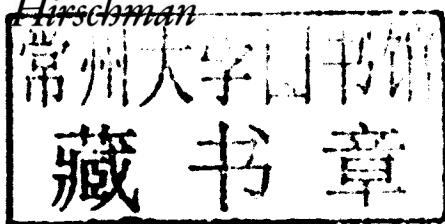 Hirschman
常州大学图书馆
藏书章